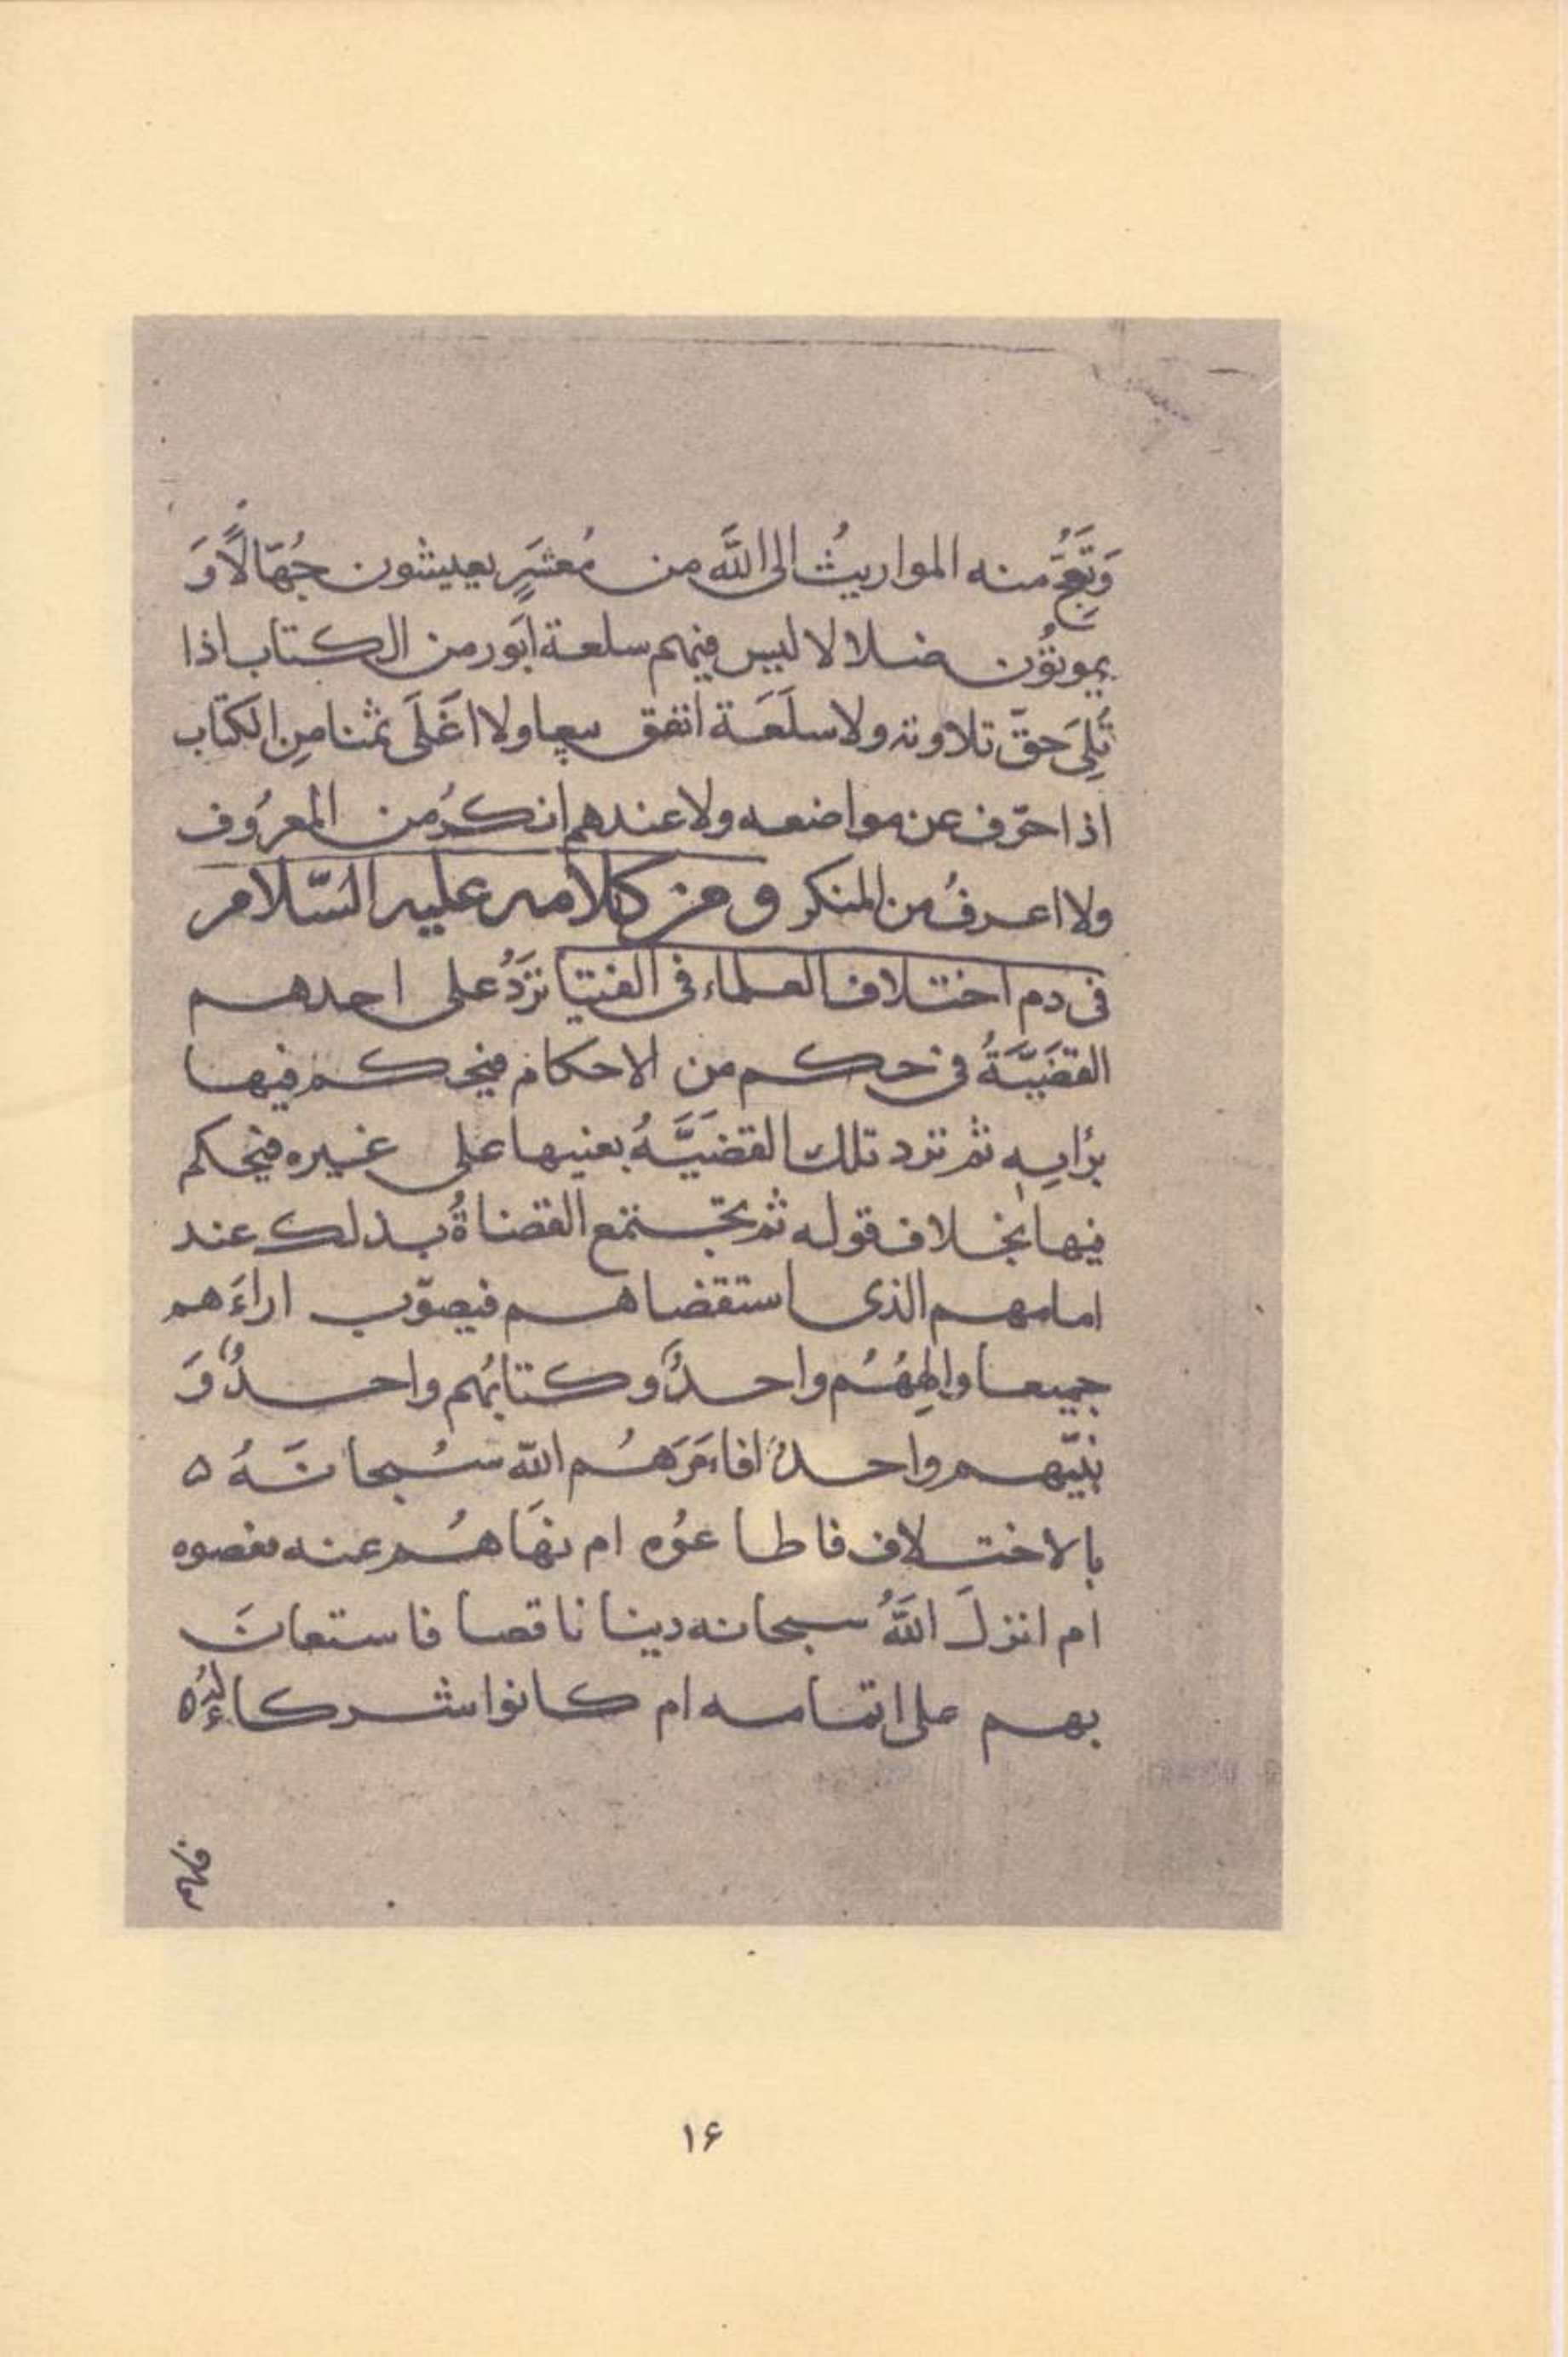 وَتَعَجُّ منه المواريثُ الى اللَّه من مُعشَرٍ يعيشون جُهّالًا وَ
يموتوُن ضلالا لا ليس فيهم سلعة ابَور من الكتاب اذا
تُلِىَ حقّ تلاوته ولا سلَعَة انفق بيعا ولا اغَلَى ثمنا مِن الكتاب
اذا حرّف عن مواضعه ولا عندهم انكرُ من المعرُوف
ولا اعرفُ من المنكر ومن كلامه عليه السّلام
فى ذم اختلاف العلماء فى الفتيا تردُ على احدهم
القضَيَّةُ فى حكم من الاحكام فيحكم فيها
برُايِه ثم ترد تلك القضَيَّةُ بعينها على غيره فيحكم
فيها بخلاف قوله ثم يجتمع القضاةُ بذلك عند
امامهم الذى استقضاهم فيصوّب اراءَهم
جميعا والهِهُمُ واحدٌ وكتابُهم واحدٌ وَ
نبيّهم واحدٌ افاءَمَرَهُم اللّه سُبحانَهُ ٥
بالاختلاف فاطاعوُه ام نهَاهُم عنه فعصوه
ام انزلَ اللَّهُ سبحانه دينا ناقصا فاستعانَ
بهم على اتمامه ام كانوا شركاءُ لهُ
فلهم
١۶